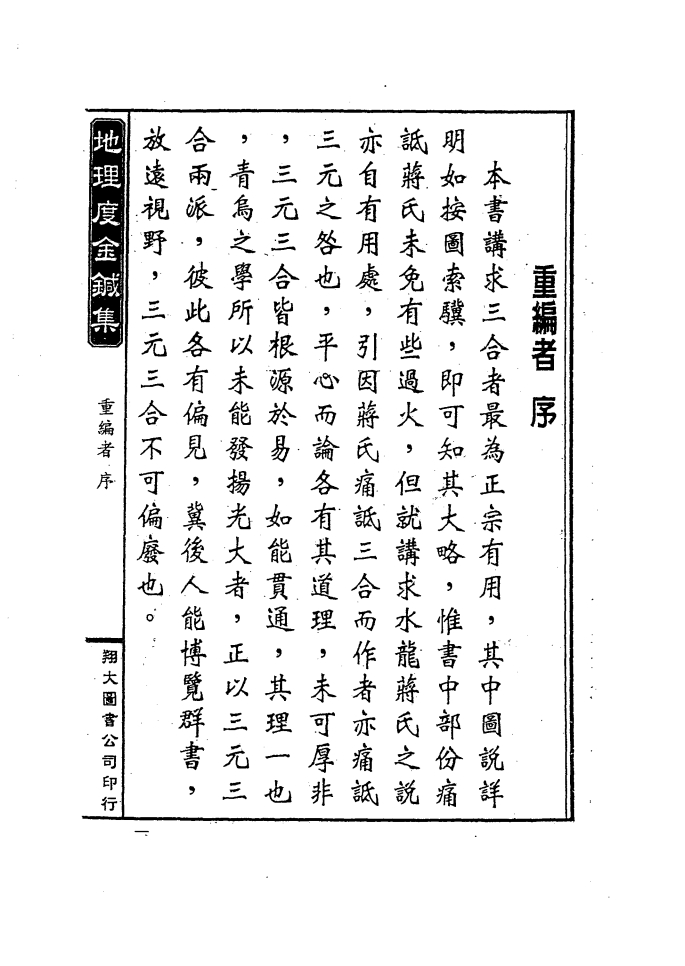 重編者 序
本書講求三合者最為正宗有用，其中圖說詳
明如按圖索驥，即可知其大略，惟書中部份痛
詆蔣氏未免有些過火，但就講求水龍蔣氏之說
亦自有用處，引因蔣氏痛詆三合而作者亦痛詆
三元之咎也，平心而論各有其道理，未可厚非
，三元三合皆根源於易，如能貫通，其理一也
，青烏之學所以未能發揚光大者，正以三元三
合兩派，彼此各有偏見，冀後人能博覽群書，
放遠視野，三元三合不可偏廢也。
地理度金鍼集
重編者 序
翔大圖書公司印行
一